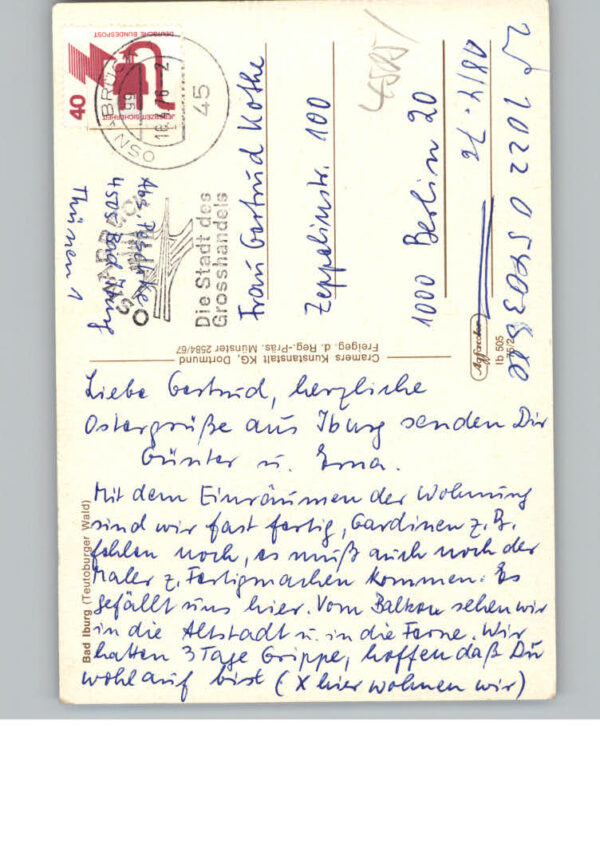 DEUTSCHE BUNDESPOST
40
JEDERZEIT SICHERHEIT
OSNABRÜCK
45
Die Stadt des
Grosshandels
Abs. Peschke
4505 Bad Iburg
Frau Gertrud Kothe
Zeppelinstr. 100
1000 Berlin 20
Cramers Kunstanstalt KG, Dortmund
Freigeg. d. Reg.-Präs. Münster 2584/67
Ib 505
Liebe Gertrud, herzliche
Ostergrüße aus Iburg senden Dir
Günter u. Erna.
Mit dem Einräumen der Wohnung
sind wir fast fertig, Gardinen z.B.
fehlen noch, es muß auch noch der
Maler z. Fertigmachen kommen. Es
gefällt uns hier. Vom Balkon sehen wir
in die Altstadt u. in die Ferne. Wir
hatten 3 Tage Grippe, hoffen daß Du
wohlauf bist (X hier wohnen wir)
Bad Iburg (Teutoburger Wald)